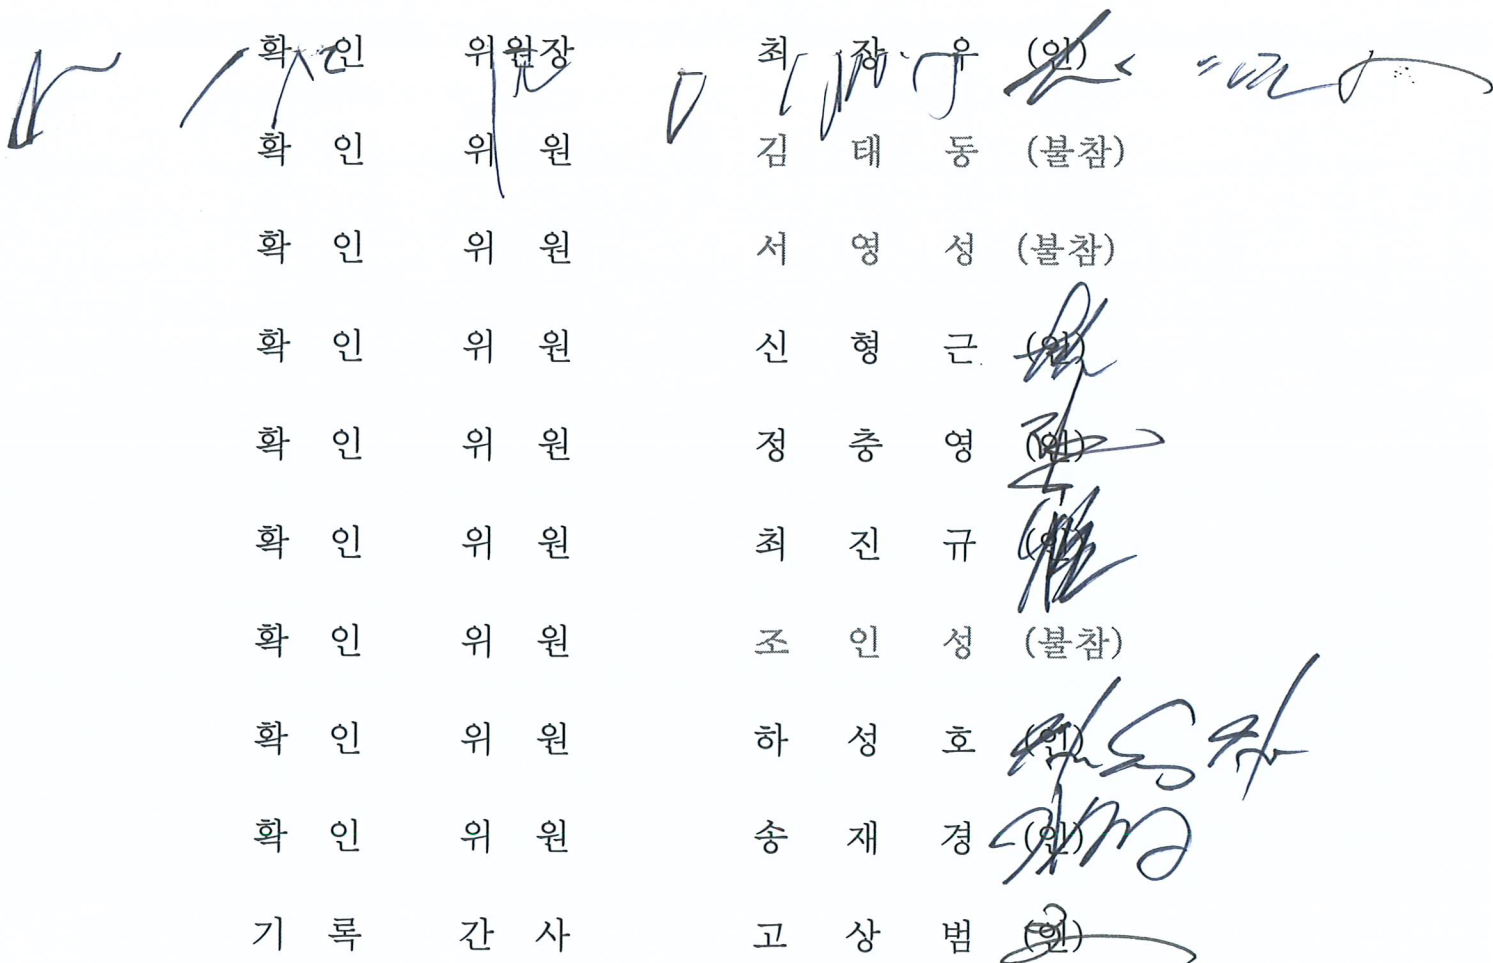 확 인 위원장 최 장 유 (인)
확 인 위 원 김 태 동 (불참)
확 인 위 원 서 영 성 (불참)
확 인 위 원 신 형 근 (인)
확 인 위 원 정 충 영 (인)
확 인 위 원 최 진 규 (인)
확 인 위 원 조 인 성 (불참)
확 인 위 원 하 성 호 (인)
확 인 위 원 송 재 경 (인)
기 록 간 사 고 상 범 (인)